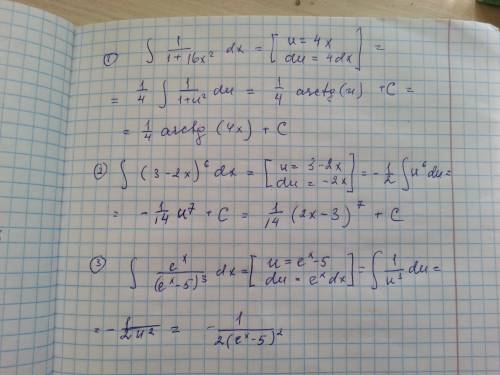 ① ∫ 1/(1+16x²) dx = [u = 4x; du = 4dx] =
= 1/4 ∫ 1/(1+u²) du = 1/4 arctg(u) + C =
= 1/4 arctg (4x) + C
② ∫ (3-2x)⁶ dx = [u = 3-2x; du = -2x] = -1/2 ∫ u⁶ du =
= -1/14 u⁷ + C = 1/14 (2x-3)⁷ + C
③ ∫ eˣ/(eˣ-5)³ dx = [u = eˣ-5; du = eˣ dx] = ∫ 1/u³ du =
= -1/2u² = -1/2(eˣ-5)²